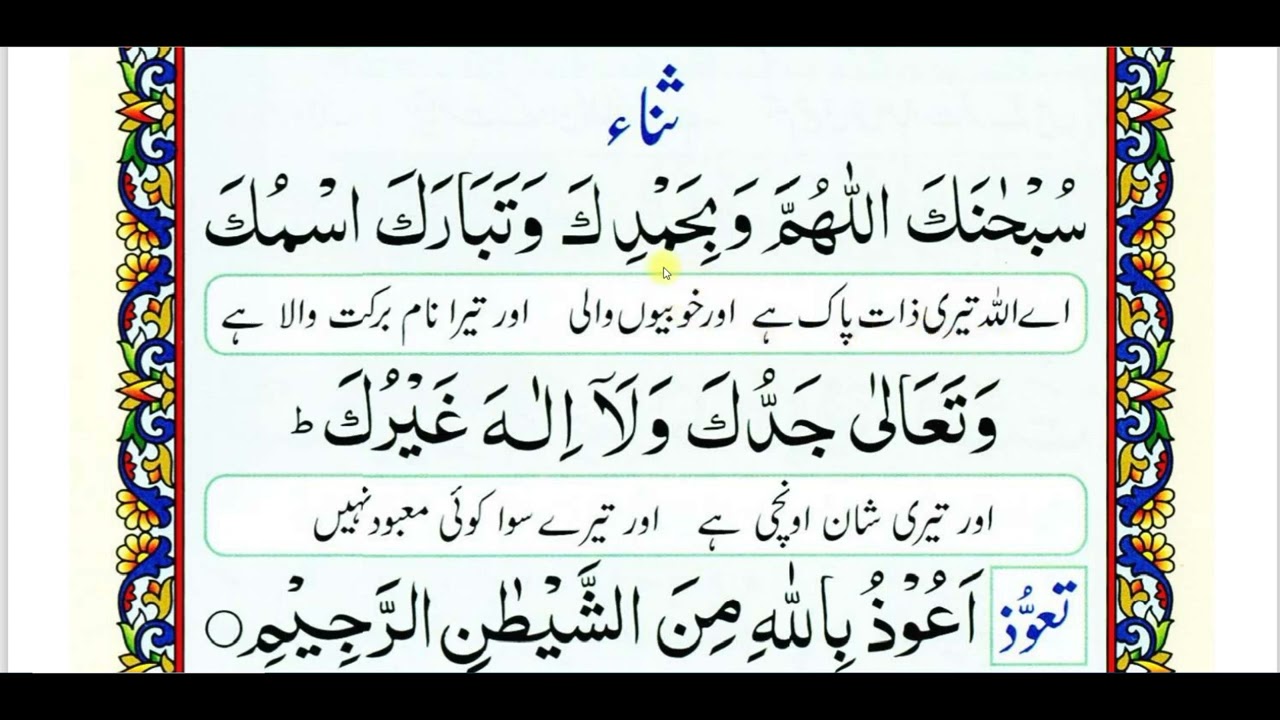 ثناء
سُبْحٰنَكَ اللّٰهُمَّ وَبِحَمْدِكَ وَتَبَارَكَ اسْمُكَ
اے اللہ تیری ذات پاک ہے اور خوبیوں والی اور تیرا نام برکت والا ہے
وَتَعَالٰی جَدُّكَ وَلَآ اِلٰـهَ غَيْرُكَ ط
اور تیری شان اونچی ہے اور تیرے سوا کوئی معبود نہیں
تعوُّذ اَعُوْذُ بِاللّٰهِ مِنَ الشَّيْطٰنِ الرَّجِيْمِ ○